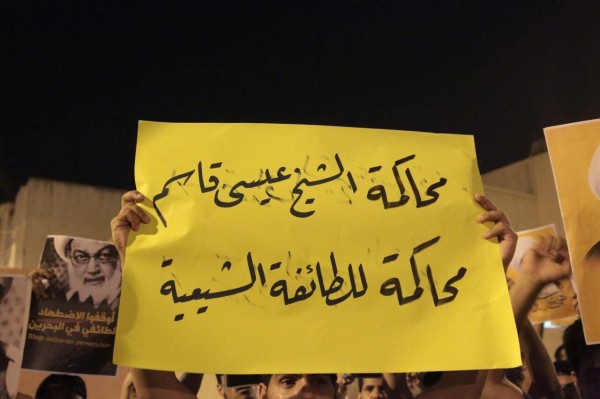 محاكمة الشيخ عيسى قاسم
محاكمة للطائفة الشيعية
أوقفوا الاضطهاد
الطائفي في البحرين
Stop sectarian persecution